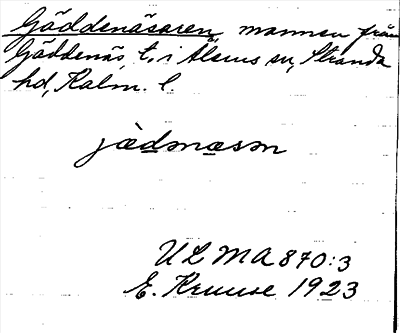 Gäddenäsaren, mannen från
Gäddenäs t. i Ålems sn, Stranda
hd, Kalm. l.
jädnäsm
ULMA 870:3
E. Kruuse 1923